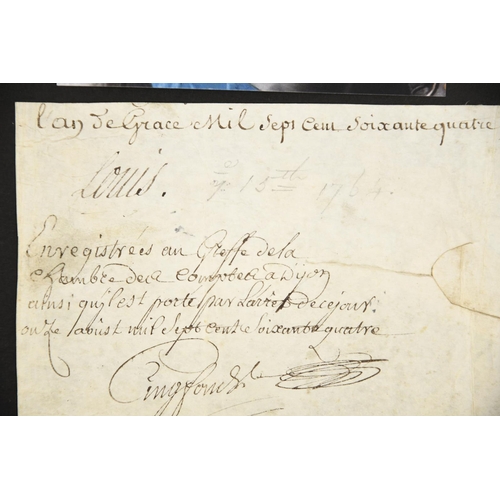 l'an De Grace Mil Sept Cent Soixante quatre
Louis. 15th 1764.
Enregistrées au Greffe de la
Chambre des Comptes a Dijon
ainsi qu'il est porté par larrest de ce jour
onze aoust mil sept cent soixante quatre